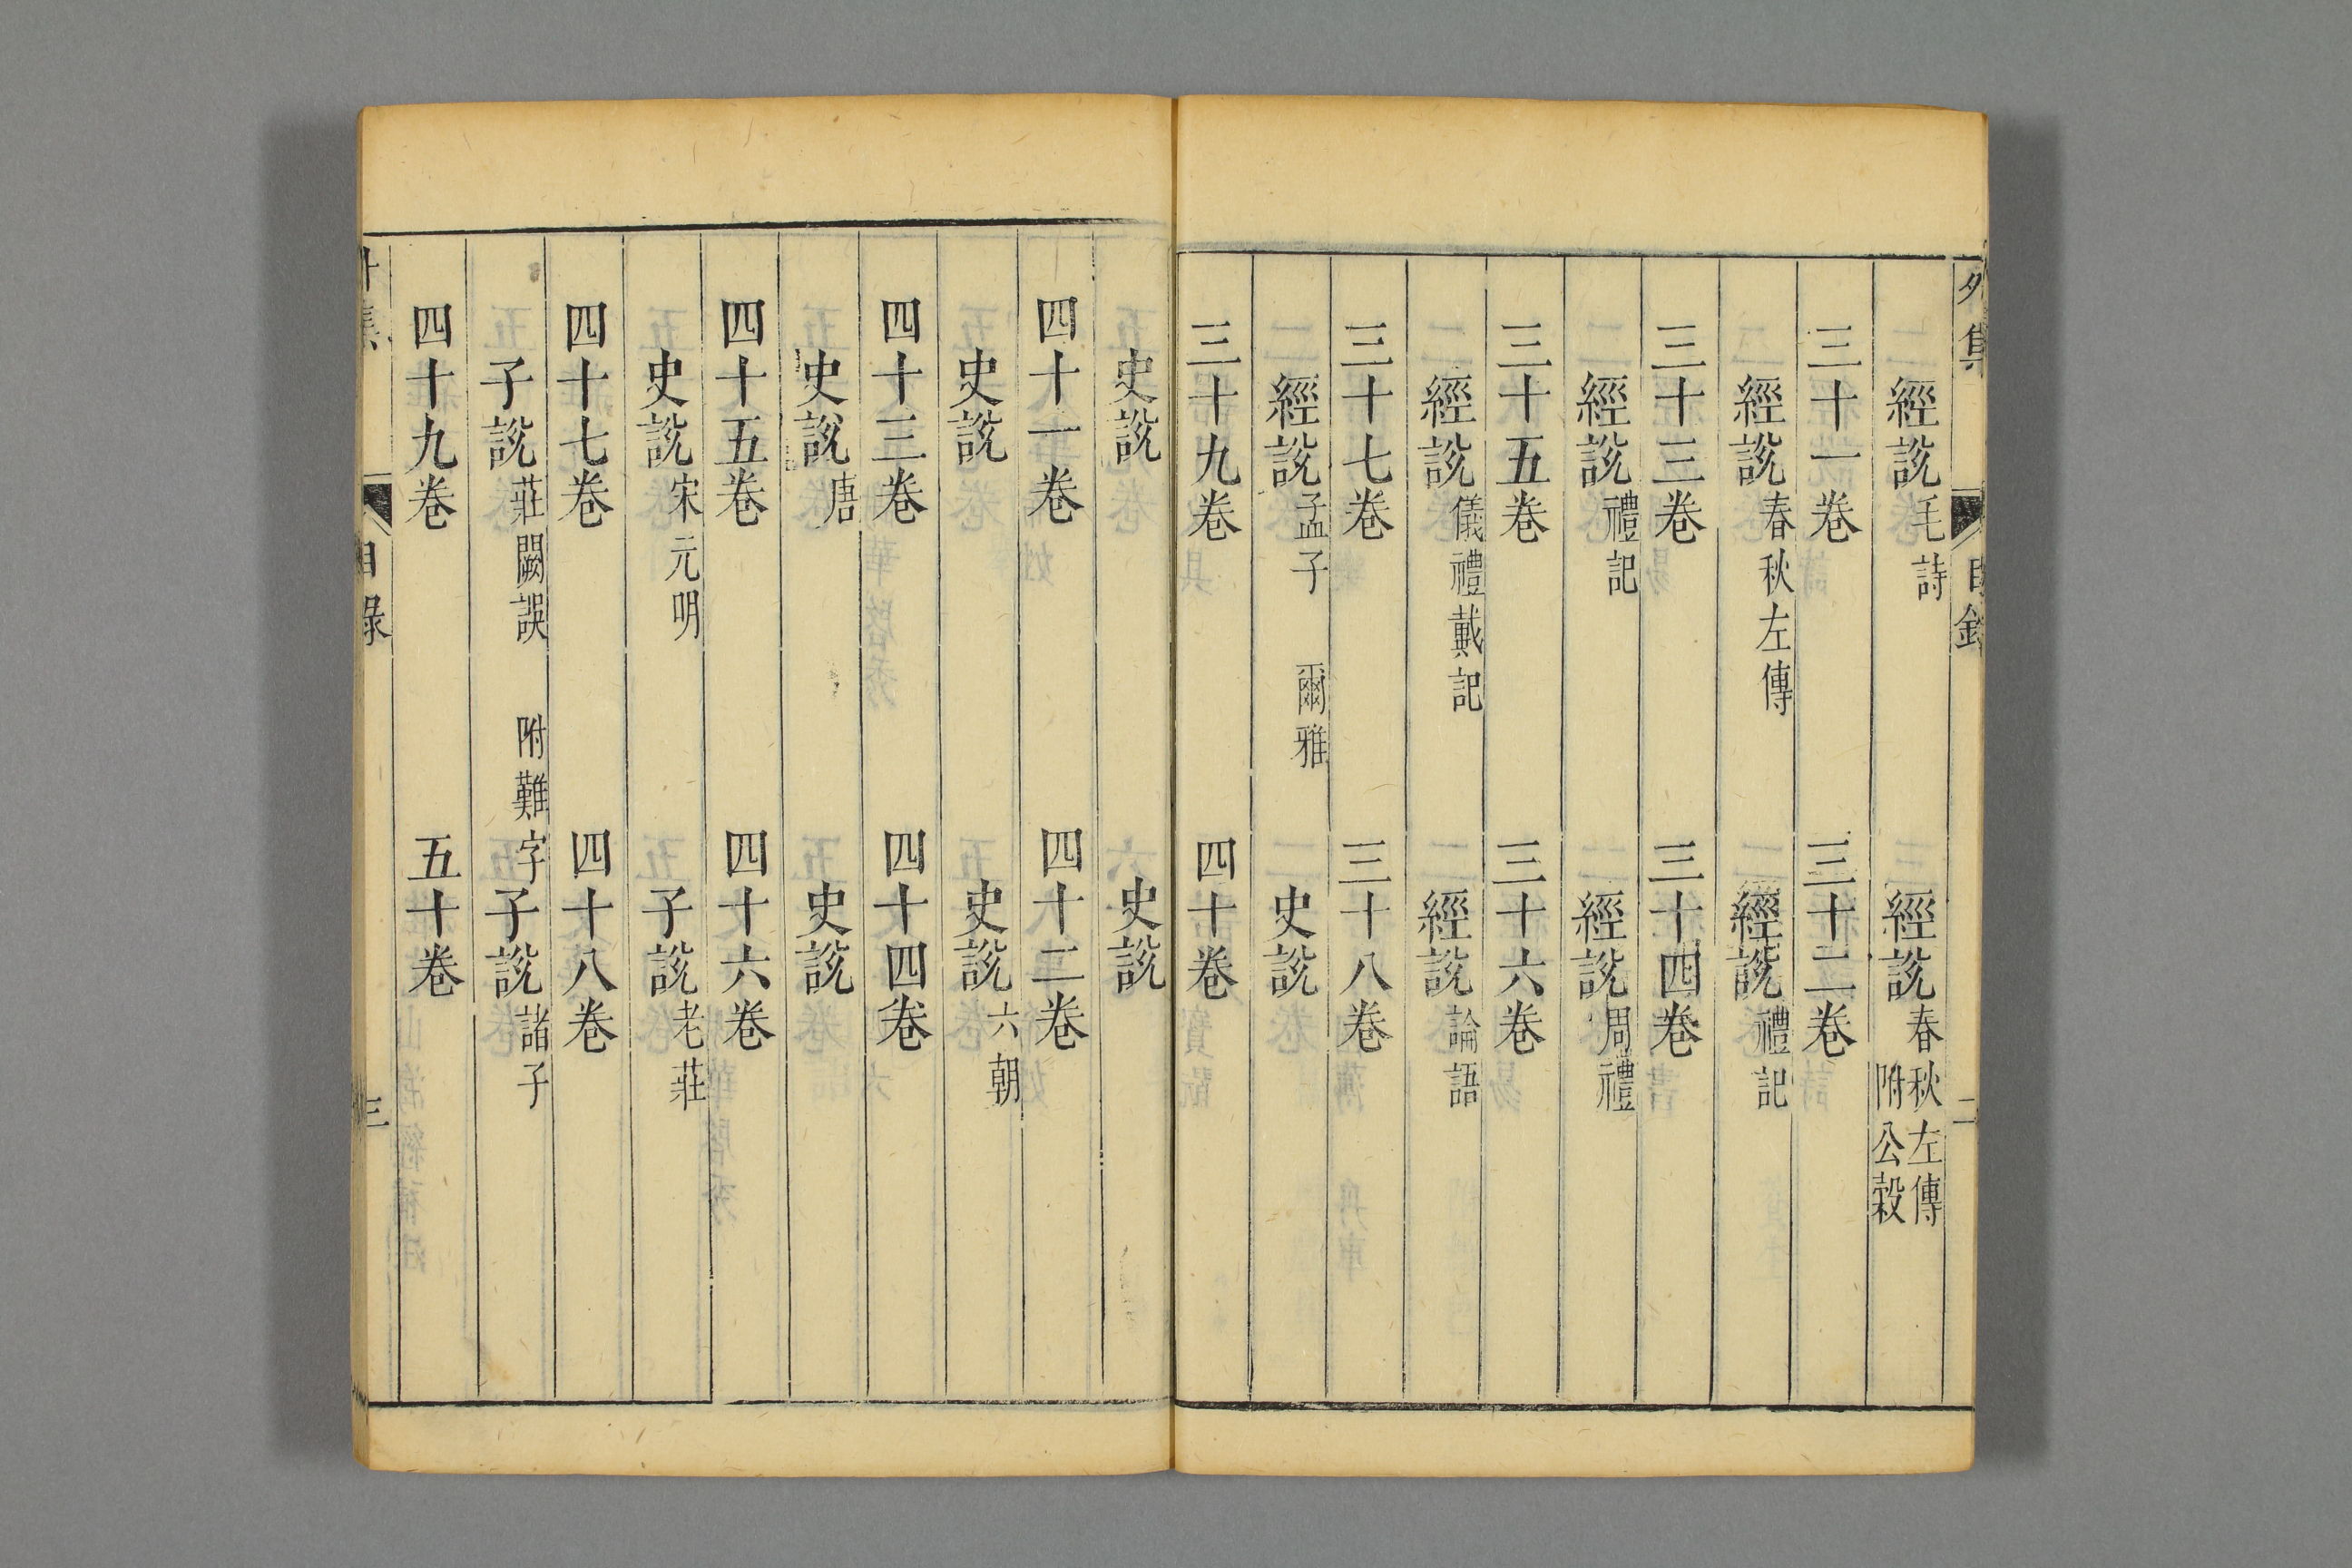 外集 目錄 二
經說毛詩 經說春秋左傳附公穀
三十一卷 三十二卷
經說春秋左傳 經說禮記
三十三卷 三十四卷
經說禮記 經說周禮
三十五卷 三十六卷
經說儀禮戴記 經說論語
三十七卷 三十八卷
經說孟子 爾雅 史說
三十九卷 四十卷
史說 史說
四十一卷 四十二卷
史說 史說六朝
四十三卷 四十四卷
史說唐 史說
四十五卷 四十六卷
史說宋元明 子說老莊
四十七卷 四十八卷
子說莊闕誤 附難字 子說諸子
四十九卷 五十卷
外集 目錄 三